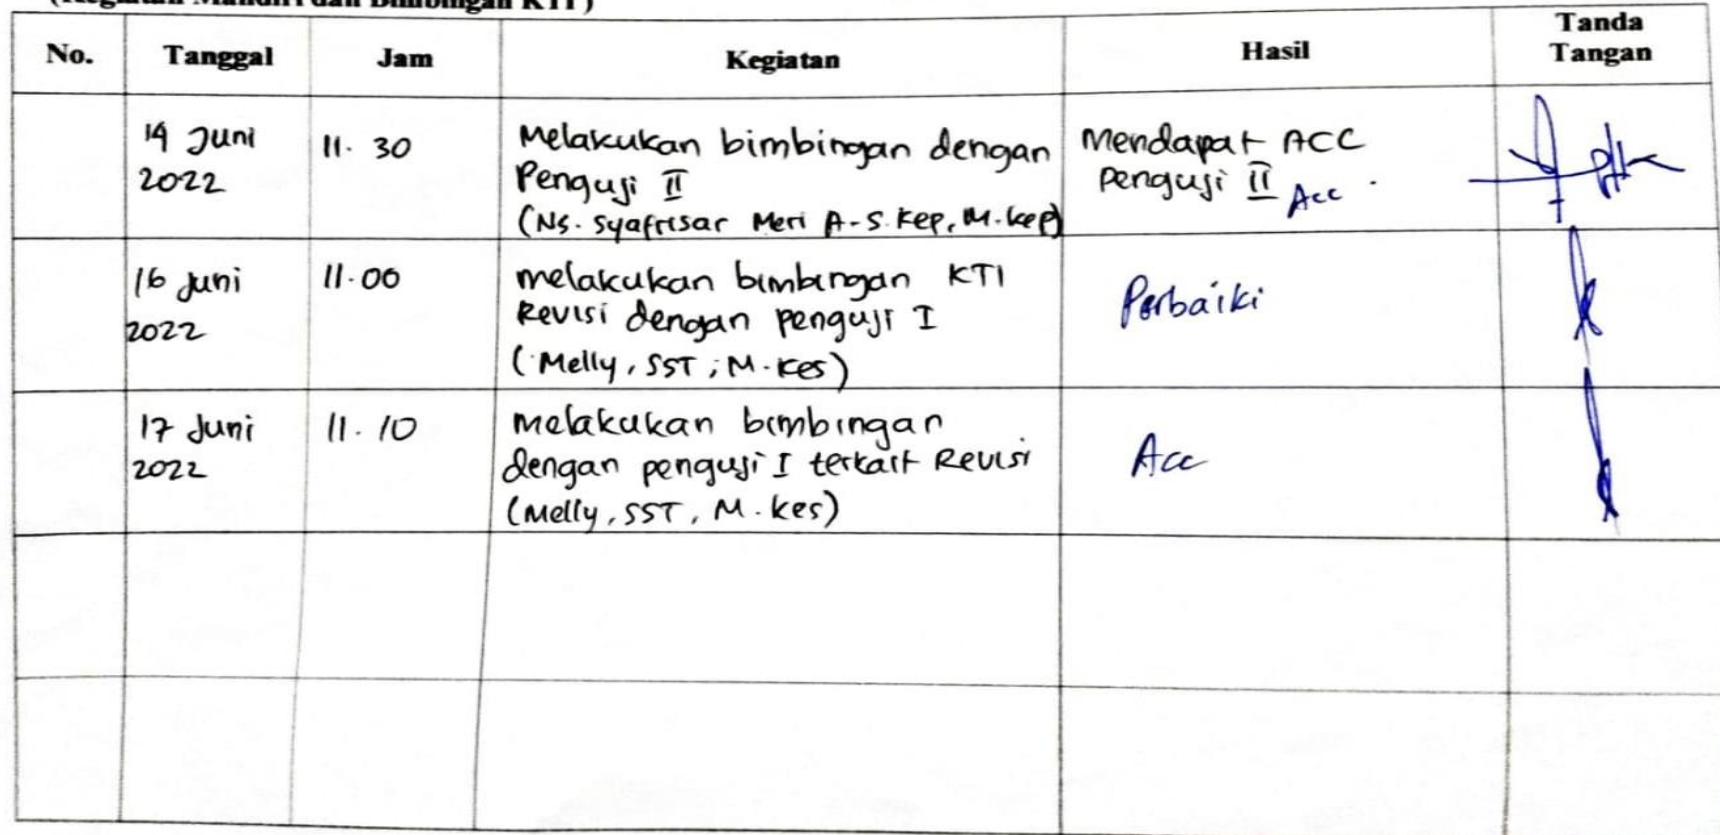 (Kegiatan Mandiri dan Bimbingan KTI)
No. Tanggal Jam Kegiatan Hasil Tanda Tangan
14 Juni 2022
11. 30
Melakukan bimbingan dengan
Penguji II
(Ns. Syafrisar Meri A-S.Kep, M.Kep)
Mendapat ACC
Penguji II Acc .
16 Juni
2022
11.00
melakukan bimbingan KTI
Revisi dengan penguji I
(Melly, SST, M.Kes)
Perbaiki
17 Juni
2022
11.10
melakukan bimbingan
dengan penguji I terkait Revisi
(Melly, SST, M.kes)
Acc